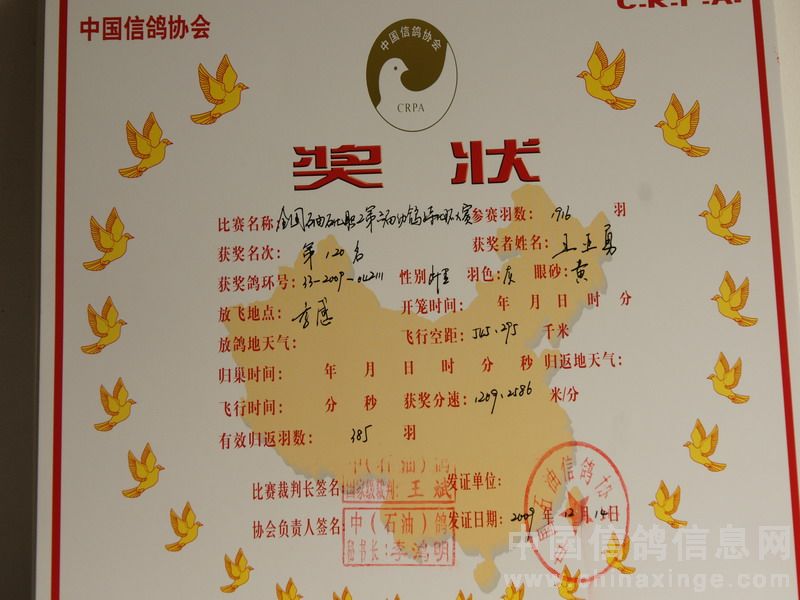 中国信鸽协会
C.R.P.A.
中国信鸽协会
CRPA
奖 状
比赛名称: 全国石油石化职工第二届 信鸽 大赛 参赛羽数: 1916 羽
获奖名次: 第120名 获奖者姓名: 王玉勇
获奖鸽环号: 33-2009-042111 性别 羽色: 灰 眼砂: 黄
放飞地点: 孝感 开笼时间: 年 月 日 时 分
放鸽地天气: 飞行空距: 545.295 千米
归巢时间: 年 月 日 时 分 秒 归返地天气:
飞行时间: 分 秒 获奖分速: 1209.2586 米/分
有效归返羽数: 385 羽
中(石油)鸽
比赛裁判长签名: 国家级裁判: 王斌 发证单位:
协会负责人签名: 中(石油)鸽 发证日期: 2009 年 12 月 14 日
秘书长: 李鸿明
石油信鸽协
中国信鸽信息网
www.chinaxinge.com